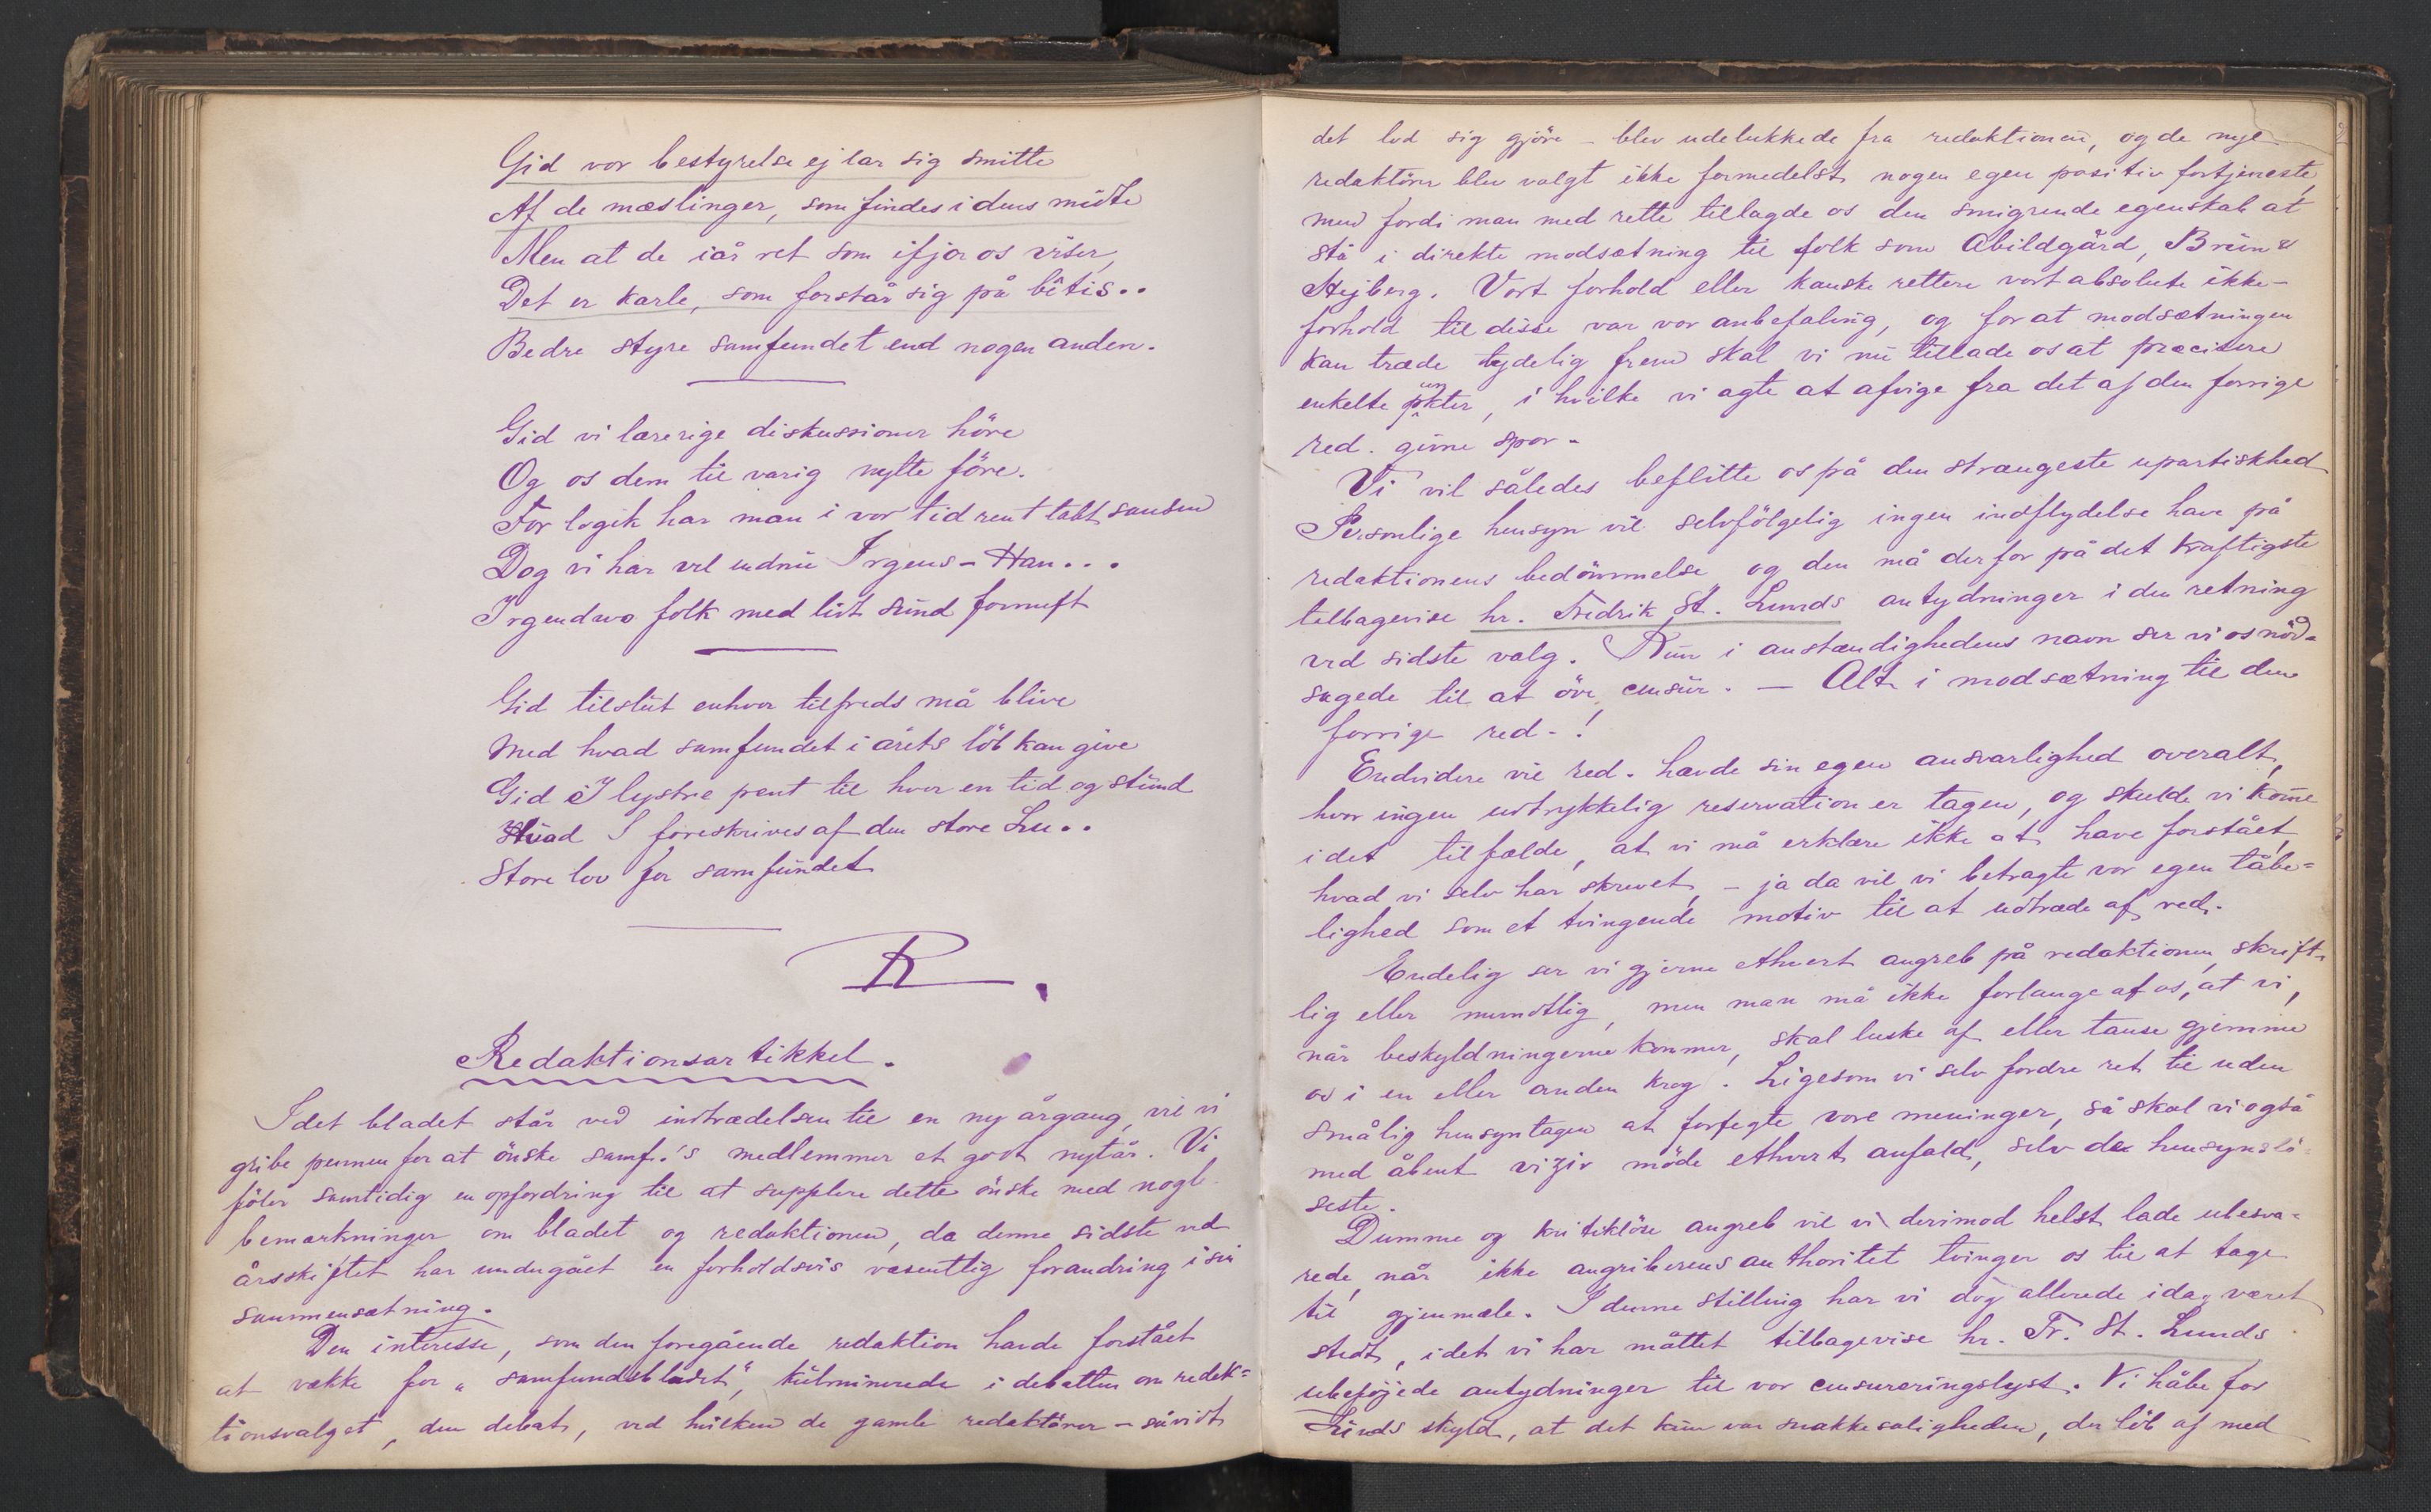 Gid vor bestyrelse ej lar sig smitte
Af de mæslinger, som findes i dens midte
Men at de iår ret som ifjor os viser,
Det er karle, som forstår sig på bêtis..
Bedre styre samfundet end nogen anden.
Gid vi lærerige diskussioner höre
Og os dem til varig nytte före.
For logik har man i vor tid rent tabt sansen
Dog vi har vel endnu Irgens-Han...
Irgendwo folk med lidt sund fornuft
Gid tilslut enhver tilfreds må blive
Med hvad samfundet i årets löb kan give
Gid I lystre pent til hver en tid og stund
Hvad I foreskrives af den store Lu..
Store lov for samfundet
R.
Redaktionsartikkel.
Idet bladet står ved indtrædelsen til en ny årgang, vil vi
gribe pennen for at önske samf.'s medlemmer et godt nytår. Vi
föler samtidig en opfordring til at supplere dette önske med nogle
bemærkninger om bladet og redaktionen, da denne sidste ved
årsskiftet har undergået en forholdsvis væsentlig forandring i sin
sammensætning.
Den interesse, som den foregående redaktion havde forstået
at vække for „samfundsbladet", kulminerede i debatten om redak=
tionsvalget, den debat, ved hvilken de gamle redaktörer – såvidt
det lod sig gjöre – blev udelukkede fra redaktionen, og de nye
redaktörer blev valgt ikke formedelst nogen egen positiv fortjeneste,
men fordi man med rette tillagde os den smigrende egenskab at
stå i direkte modsætning til folk som Abildgård, Brun &
Hejberg. Vort forhold eller kanske rettere vort absolute ikke-
forhold til disse var vor anbefaling, og for at modsætningen
kan træde tydelig frem skal vi nu tillade os at præcisere
enkelte punkter, i hvilke vi agte at afvige fra det af den forrige
red. givne spor.
Vi vil således beflitte os på den strængeste upartiskhed
Personlige hensyn vil selvfölgelig ingen indflydelse have på
redaktionens bedömmelse og den må derfor på det kraftigste
tilbagevise hr. Fredrik St. Lunds antydninger i den retning
ved sidste valg. Kun i anstændighedens navn ser vi os nöd-
sagede til at öve censur. — Alt i modsætning til den
forrige red-!
Endvidere vil red. hævde sin egen ansvarlighed overalt,
hvor ingen udtrykkelig reservation er tagen, og skulde vi komme
i det tilfælde, at vi må erklære ikke at have forstået,
hvad vi selv har skrevet, – ja da vil vi betragte vor egen tåbe=
lighed som et tvingende motiv til at udtræde af red.
Endelig ser vi gjerne ethvert angreb på redaktionen, skrift-
lig eller mundtlig, men man må ikke forlange af os, at vi,
når beskyldningerne kommer, skal luske af eller tause gjemme
os i en eller anden krog. Ligesom vi selv fordre ret til uden
smålig hensyntagen at forfegte vore meninger, så skal vi også
med åbent vizir möde ethvert anfald, selv de hensynslö-
seste.
Dumme og kritiklöse angreb vil vi derimod helst lade ubesva-
rede, når ikke angriberens authoritet tvinger os til at tage
til gjenmæle. I denne stilling har vi dog allerede idag været
stedt, idet vi har måttet tilbagevise hr. Fr. St. Lunds
ubeföjede antydninger til vor censureringslyst. Vi håbe for
Lunds skyld, at det kun var snakkesaligheden, der löb af med